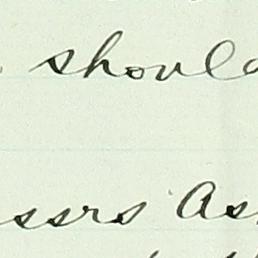 should
ssrs As